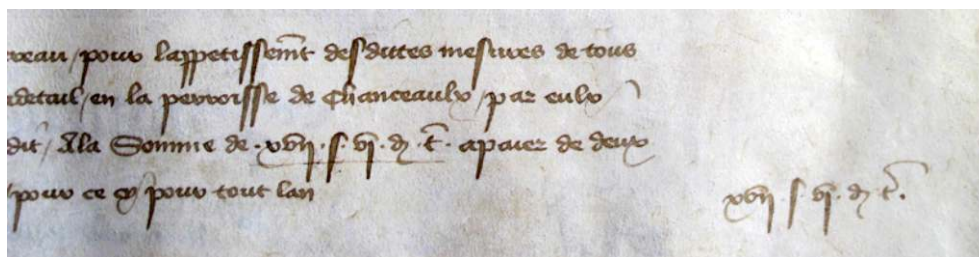 pour lappetissemt desdictes mesures de tous
en la perroisse de Chanceaulx par eulx
Ala Somme de . xvii . s . vi . d . t . apaier de deux
pour ce cy pour tout lan xvii . s . vi . d . t .